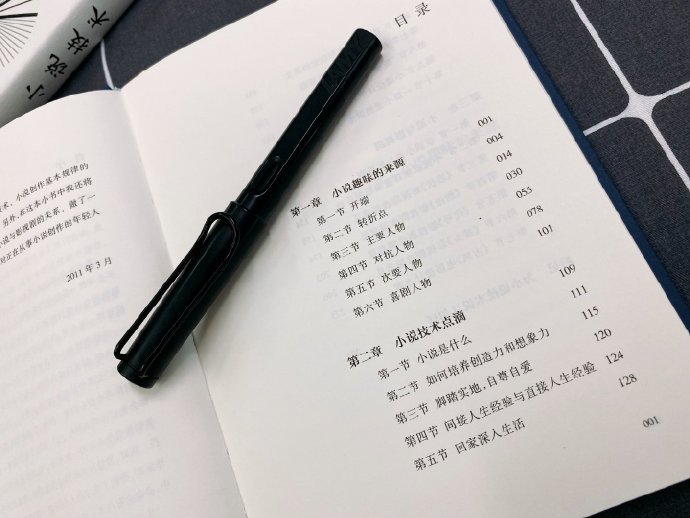 小说技术
术，小说创作基本规律的
另外，在这本小书中我还将
说与影视剧的关系，做了一
对正在从事小说创作的年轻人
2011 年 3 月
目录
第一章 小说趣味的来源 001
第一节 开端 004
第二节 转折点 014
第三节 主要人物 030
第四节 对抗人物 055
第五节 次要人物 078
第六节 喜剧人物 101
第二章 小说技术点滴 109
第一节 小说是什么 111
第二节 如何培养创造力和想象力 115
第三节 脚踏实地，自尊自爱 120
第四节 间接人生经验与直接人生经验 124
第五节 回家深入生活 128
001